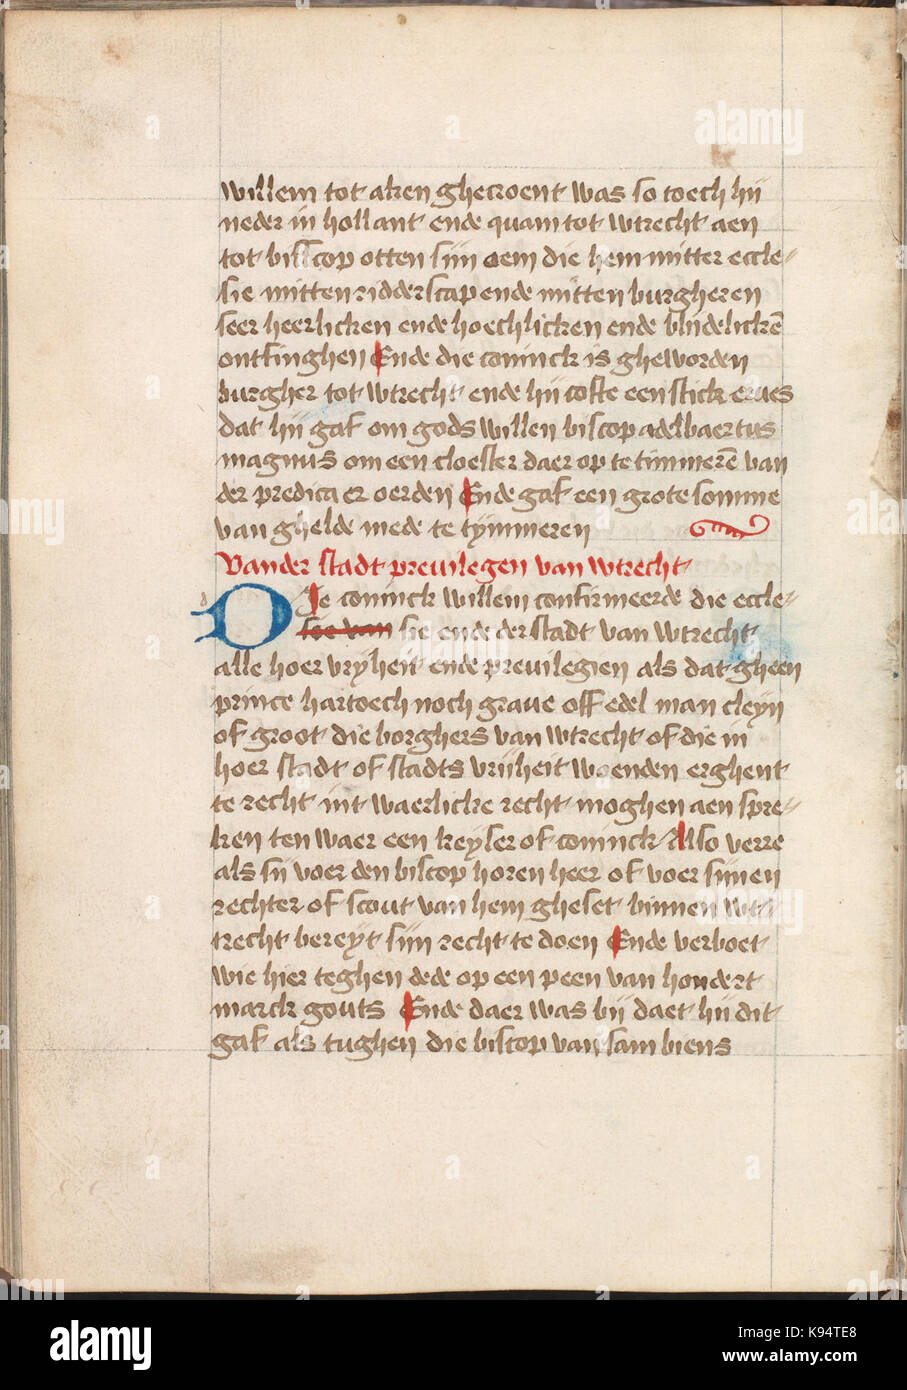 willem tot aken ghecroent was so toech hij
neder in hollant ende quam tot wtrecht aen
tot bisscop otten sijn oem die hem mitter eccle-
sie mitten ridderscap ende mitten burgheren
seer heerlicken ende hoechlicken ende blidelickē
ontfinghen Ende die coninck is gheworden
burgher tot wtrecht ende hij cofte een stick erues
dat hij gaf om gods willen biscop adelbaertus
magnus om een cloester daer op te timmerē van
der predicaer oerden Ende gaf een grote somme
van ghelde mede te tymmeren
Vander stadt preuilegen van wtrecht
DIe coninck willem confirmeerde die eccle-
see van sie ende der stadt van wtrecht
alle hoer vryheit ende preuilegien als dat gheen
prince hartoech noch graue off edel man cleyn
of groot die borghers van wtrecht of die in
hoer stadt of stadts vrijheit woenden erghent
te recht int waerlicke recht moghen aen spre-
ken ten waer een keyser of coninck Also verre
als sij voer den biscop horen heer of voer sijnen
rechter of scout van hem gheset binnen wt-
trecht bereyt sijn recht te doen Ende verboet
wie hier teghen dede op een peen van hondert
marck gouts Ende daer was bij daet hij dit
gaf als tughen die biscop van sambiens
alamy
K94TE8
www.alamy.com